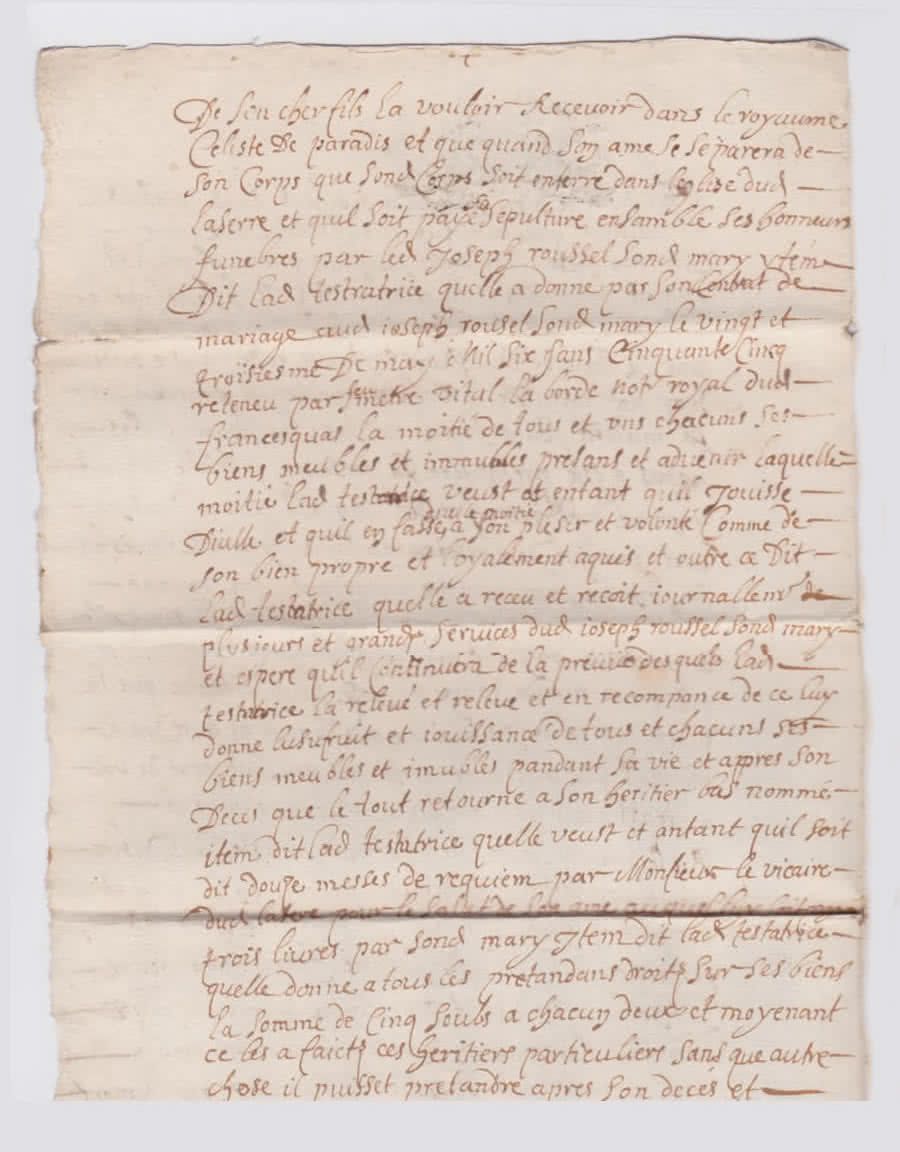 De son cher fils la vouloir Recevoir dans le royaume
Celiste De paradis et que quand Son ame se separera de
son Corps que sond Corps soit enterre dans leglise dud
laserre et quil soit payé sa sepulture ensamble ses honneurs
funebres par led Joseph roussel Sond mary ytem
Dit lad testratrice quelle a donne par son Contrat de
mariage aud ioseph rousel Sond mary le vingt et
troisiesme De may Mil six sans Cinquante Cinq
reteneu par feu metre Vital la borde notr royal dud
francesquas la moitié de tous et uns chacuns ses
biens meubles et immubles presans et advenir laquelle
moitie lad testatrice veust et entant quil Jouisse
Dicelle et quil en fasse dicelle moitie a son plesir et volonté Comme de
son bien propre et loyalement aquis et outre ce Dit
lad testatrice quelle a receu et recoit iournallemt de
plusiours et grands Services dud ioseph roussel Sond mary
et espere quil Continuera de la preuve desquels lad
testatrice la relevé et releve et en recompance de ce luy
donne lusufruit et iouissance de tous et chacuns ses
biens meubles et imubles pandant sa vie et appres son
Deces que le tout retourne a son heritier bas nommé
item dit lad testatrice quelle veust et antant quil soit
dit douze messes de requiem par Monsieur le vicaire
dud laserre pour le salut de son ame auquel
trois livres par sond mary Jtem dit lad testatrice
quelle donne a tous les pretandans droits sur ses biens
la somme de Cinq souls a chacun deux et moyenant
ce les a faicts ces heritiers particuliers sans que autre
chose il puisset pretandre apres son decés et